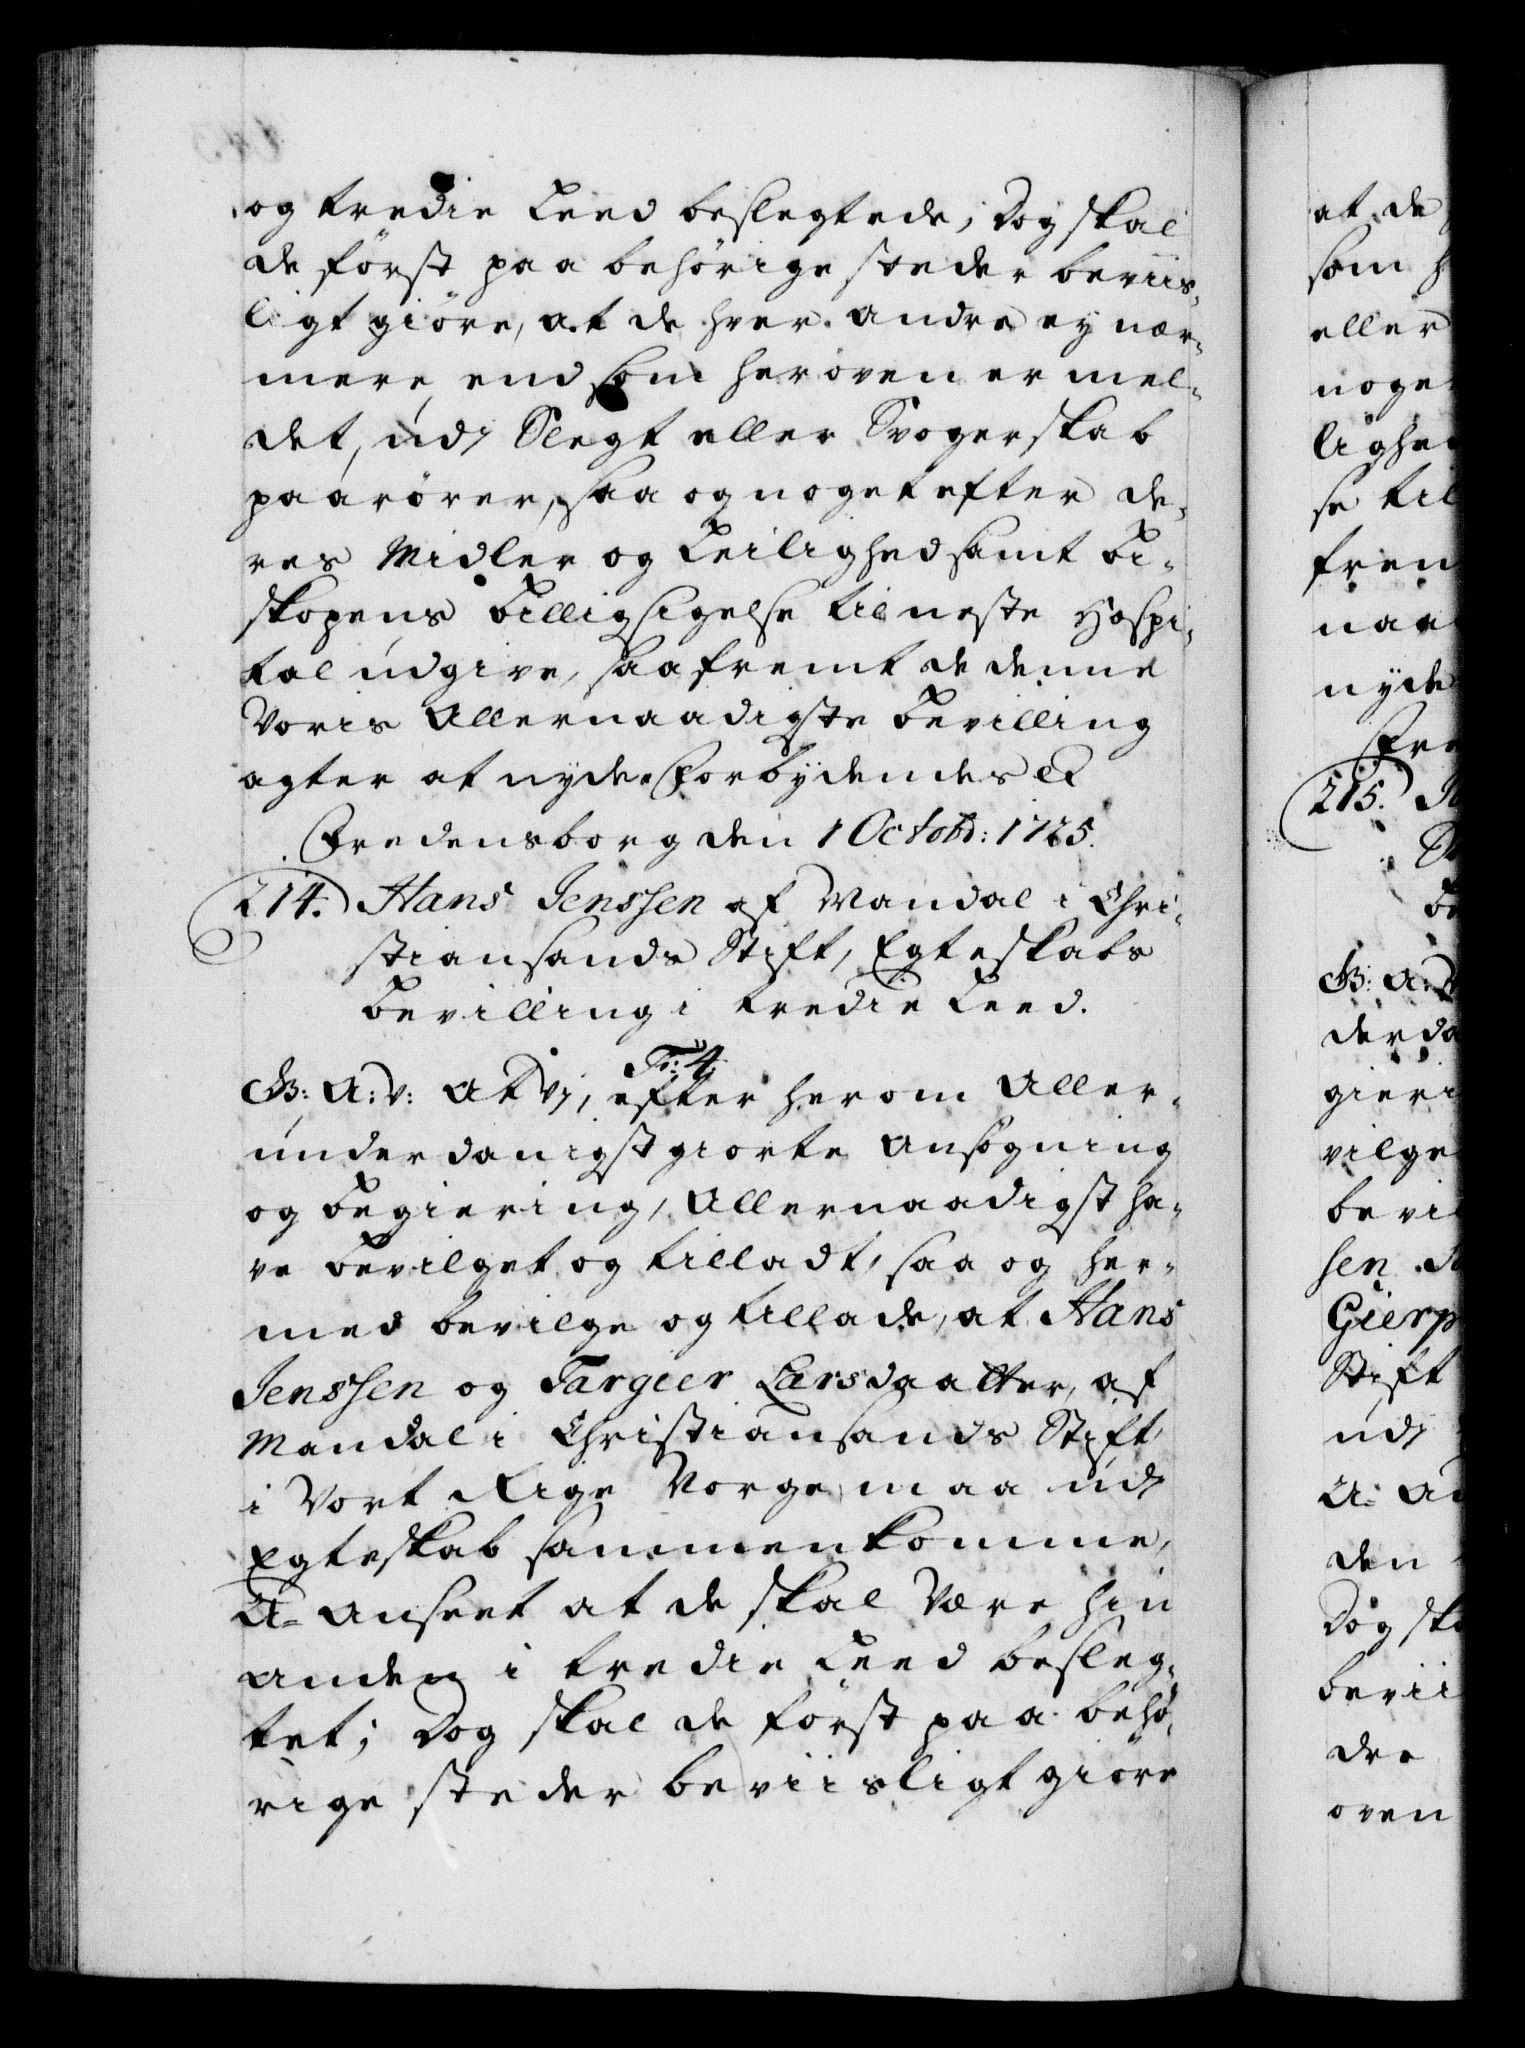 og tredie Leed beslegtede; Dog skal
de först paa behörige steder beviis-
ligt giöre, at de hver andre ey nær-
mere, end som her oven er mel-
det, udj Slegt eller Svogerskab
paarörer, saa og noget efter de-
res Midler og Leilighed samt Bi-
skopens billigsigelse til neste Hospi-
tal udgive, saafremt de denne
Voris Allernaadigste Bevilling
agter at nyde. Forbydendes etc
Fredensborg den 1 Octobr: 1725.
214. Hans Jenssen af Mandal i Chri-
stiansands Stift, Egteskabs
Bevilling i tredie Leed.
Fr: 4.
G: A: v: At Vj, efter herom Aller-
underdanigst giorte Ansögning
og Begiering, Allernaadigst ha-
ve bevilget og tilladt, saa og her-
med bevilge og tillade, at Hans
Jenssen og Targier Larsdaatter, af
Mandal i Christiansands Stift
i Vort Rige Norge, maa udj
Egteskab sammenkomme,
U-anseet at de skal Være hin
anden i tredie Leed besleg-
tet; Dog skal de först paa behö-
rige steder beviisligt giöre
at de
som h
eller
noge
lighe
se til
frem
naa
nyde
Fre
215.
Be
G: A: v
derda
gieri
vilge
bevil
sen
Gierp
Stift
udj
U-an
den
Dog ska
bevii
dre
oven